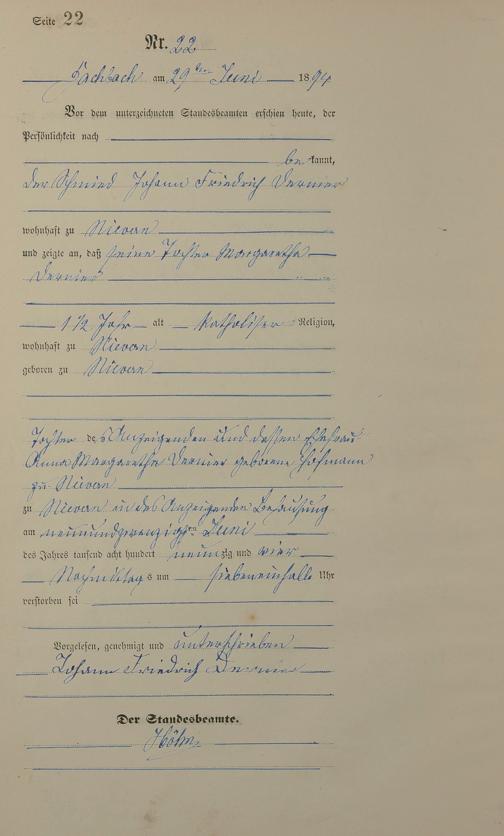 Seite 22
Nr. 22
Fachbach am 29ten Juni 1894
Vor dem unterzeichneten Standesbeamten erschien heute, der
Persönlichkeit nach
be kannt,
der Schmied Johann Friedrich Dernier
wohnhaft zu Nievern
und zeigte an, daß seine Tochter Margaretha
Dernier
1 1/2 Jahr alt katholischer Religion,
wohnhaft zu Nievern
geboren zu Nievern
Tochter des Anzeigenden und dessen Ehefrau
Anna Margaretha Dernier geborene Hofmann
zu Nievern
zu Nievern in des Anzeigenden Behausung
am neunundzwanzigsten Juni
des Jahres tausend acht hundert neunzig und vier
Nachmittags um siebeneinhalb Uhr
verstorben sei
Vorgelesen, genehmigt und unterschrieben
Johann Friedrich Dernier
Der Standesbeamte.